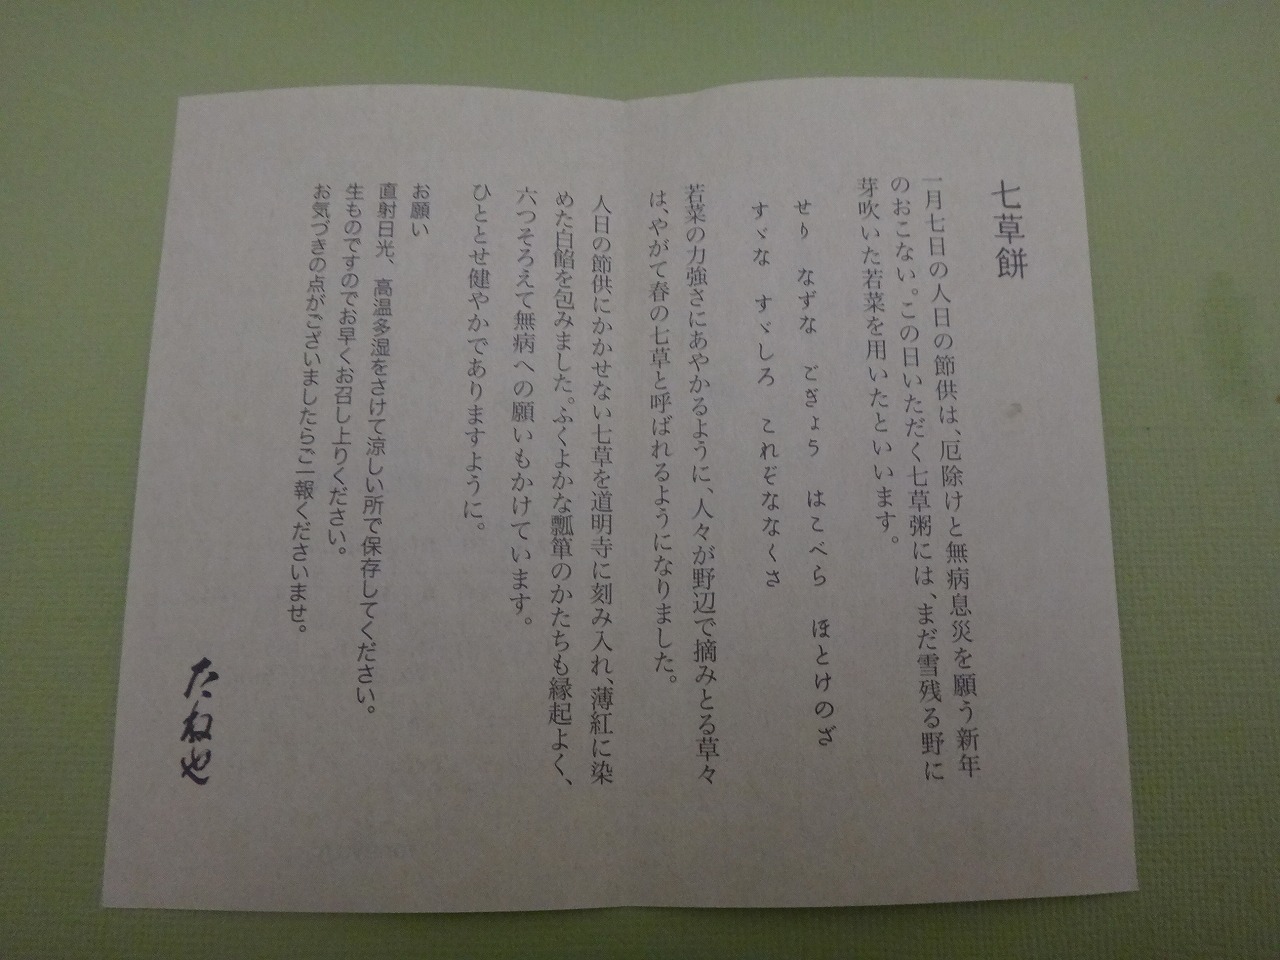 七草餅
一月七日の人日の節供は、厄除けと無病息災を願う新年
のおこない。この日いただく七草粥には、まだ雪残る野に
芽吹いた若菜を用いたといいます。
せり　なずな　ごぎょう　はこべら　ほとけのざ
すゞな　すゞしろ　これぞななくさ
若菜の力強さにあやかるように、人々が野辺で摘みとる草々
は、やがて春の七草と呼ばれるようになりました。
人日の節供にかかせない七草を道明寺に刻み入れ、薄紅に染
めた白餡を包みました。ふくよかな瓢箪のかたちも縁起よく、
六つそろえて無病への願いもかけています。
ひととせ健やかでありますように。
お願い
直射日光、高温多湿をさけて涼しい所で保存してください。
生ものですのでお早くお召し上りください。
お気づきの点がございましたらご一報くださいませ。
たねや